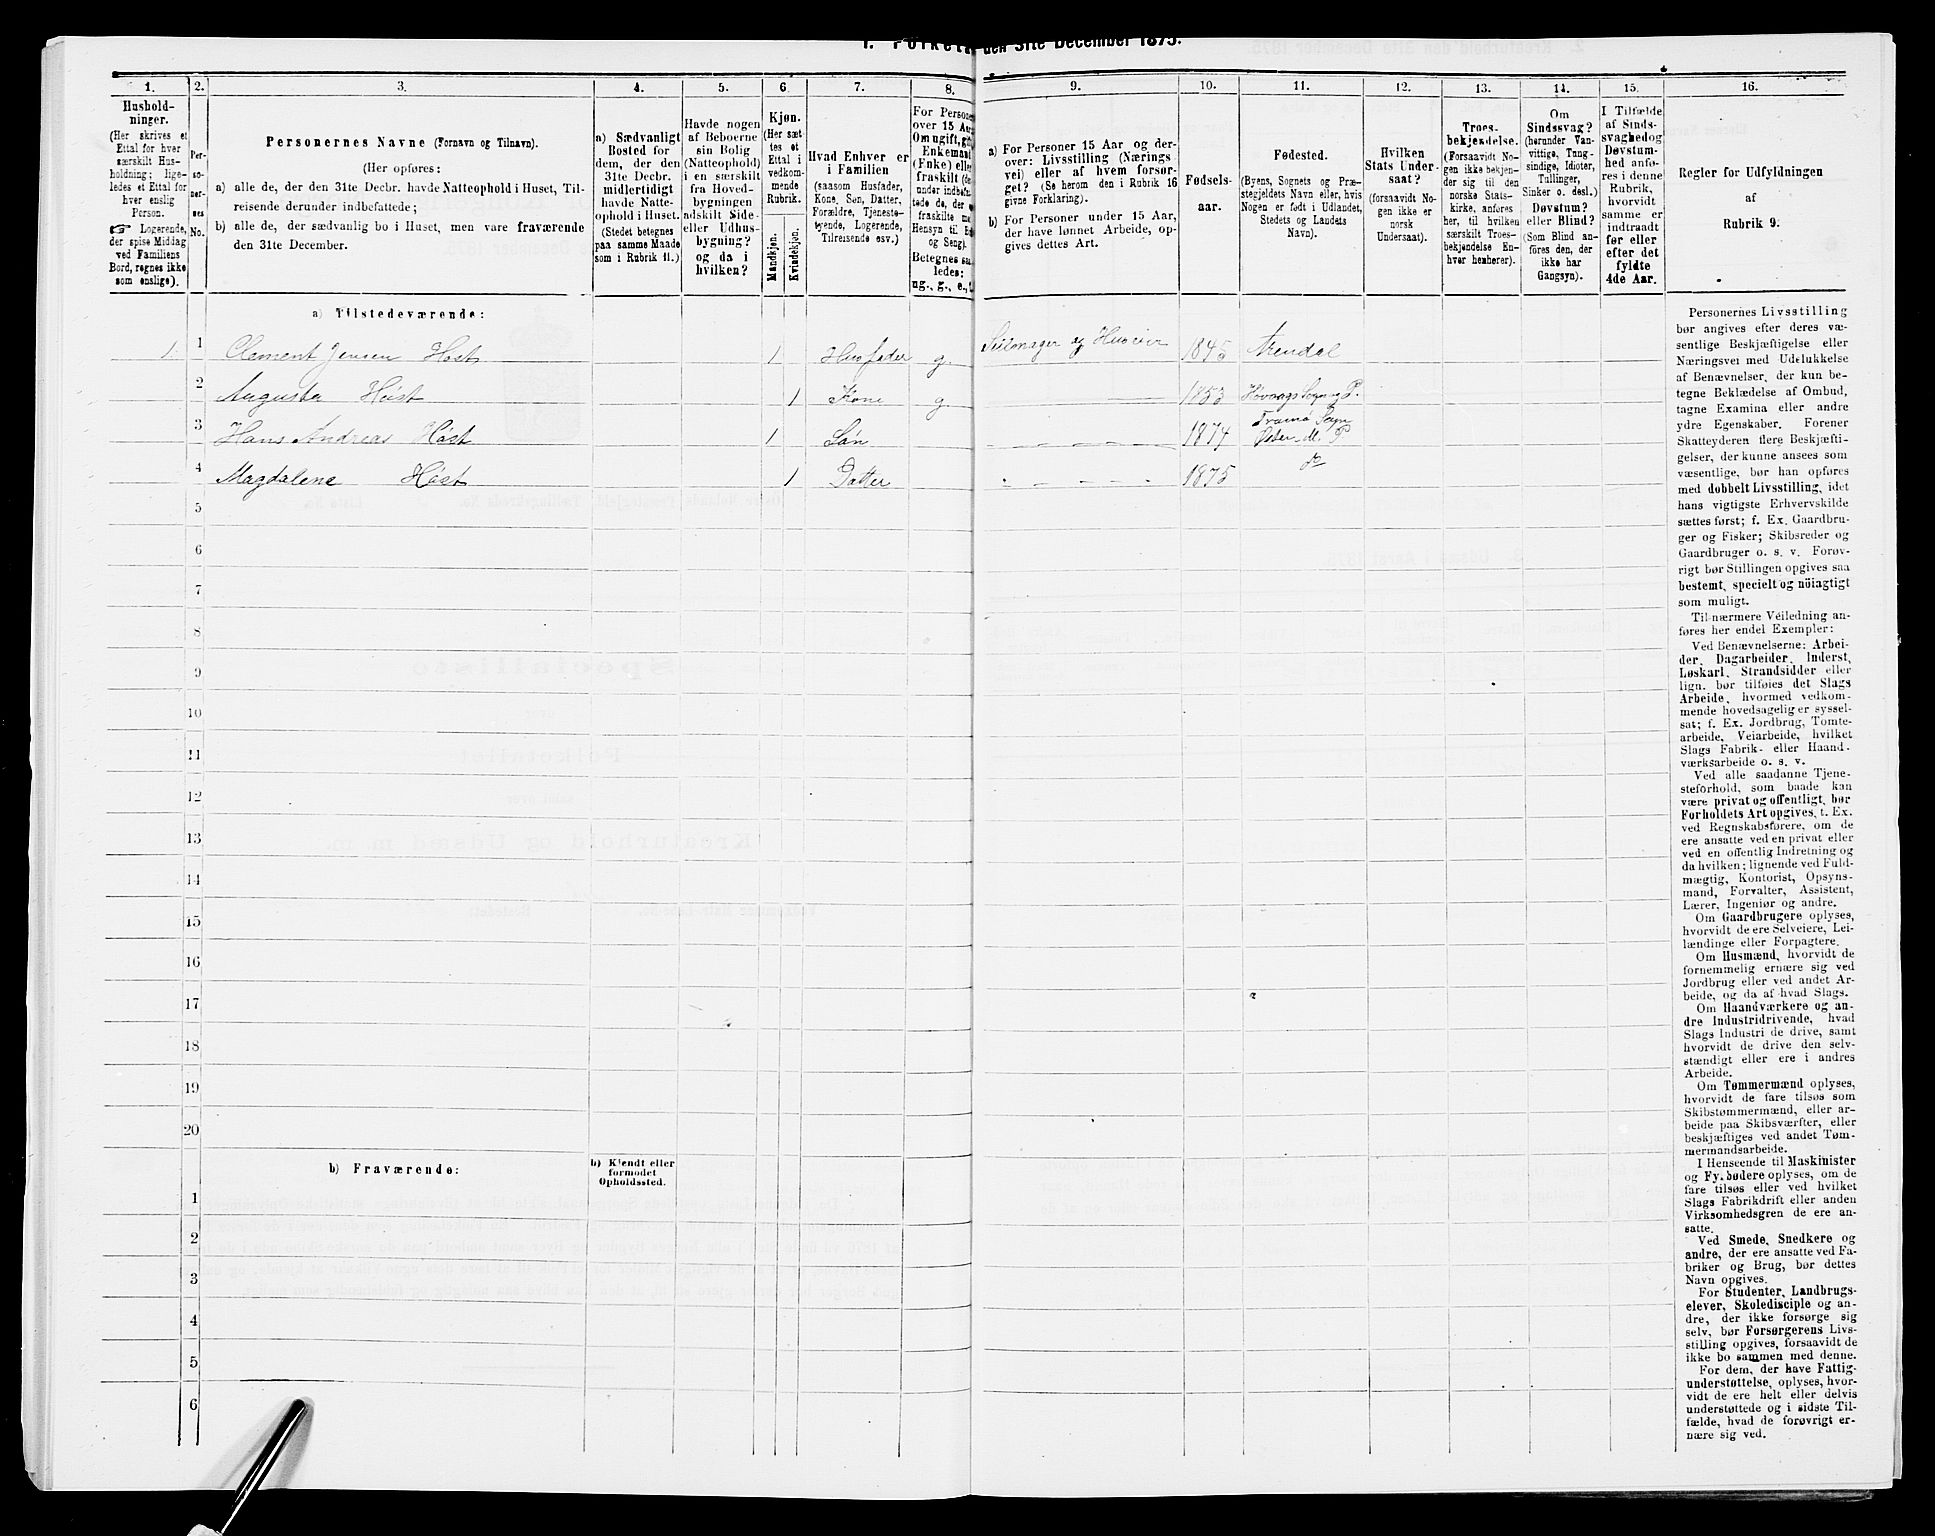 den 31te December 1875.
1.
Hushold-
ninger.
(Her skrives et
Ettal for hver
særskilt Hus-
holdning; lige-
ledes et Ettal for
hver enslig
Person.
Logerende,
der spise Middag
ved Familiens
Bord, regnes ikke
som enslige).
2.
Per-
so-
ner-
nes
No.
3.
Personernes Navne (Fornavn og Tilnavn).
(Her opføres:
a) alle de, der den 31te Decbr. havde Natteophold i Huset, Til-
reisende derunder indbefattede;
b) alle de, der sædvanlig bo i Huset, men vare fraværende
den 31te December.
4.
a) Sædvanligt
Bosted for
dem, der den
31te Decbr.
midlertidigt
havde Natte-
ophold i Huset.
(Stedet betegnes
paa samme Maade
som i Rubrik 11.)
5.
Havde nogen
af Beboerne
sin Bolig
(Natteophold)
i en særskilt
fra Hoved-
bygningen
adskilt Side-
eller Udhus-
bygning?
og da i
hvilken?
6.
Kjøn.
(Her sæt-
tes et
Ettal i
vedkom-
mende
Rubrik.
Mandkjøn.
Kvindekjøn.
7.
Hvad Enhver er
i Familien
(saasom Husfader,
Kone, Søn, Datter,
Forældre, Tjeneste-
tyende, Logerende,
Tilreisende osv.)
8.
For Persone
over 15 Aar
Om ugift, gift
Enkemand
(Enke) eller
fraskilt
Betegnes saa-
ledes:
ug., g., e.,
9.
a) For Personer 15 Aar og der-
over: Livsstilling (Nærings-
vei) eller af hvem forsør-
get? (Se herom den i Rubrik 16
givne Forklaring).
b) For Personer under 15 Aar,
der have lønnet Arbeide, op-
gives dettes Art.
10.
Fødsels-
aar.
11.
Fødested.
(Byens, Sognets og Præ-
stegjeldets Navn eller, hvis
Nogen er født i Udlandet,
Stedets og Landets
Navn).
12.
Hvilken
Stats Under-
saat?
(forsaavidt No-
gen ikke er
norsk
Undersaat).
13.
Troes-
bekjendelse.
(Forsaavidt No-
gen ikke bekjen-
der sig til den
norske Stats-
kirke, anføres
her, til hvilken
særskilt Troes-
bekjendelse En-
hver henhører).
14.
Om
Sindssvag?
(herunder Van-
vittige, Tung-
sindige, Idioter,
Tullinger,
Sinker o. desl.)
Døvstum?
eller Blind?
(Som Blind an-
føres den, der
ikke har
Gangsyn).
15.
I Tilfælde
af Sinds-
svaghed og
Døvstum-
hed anfø-
res i denne
Rubrik,
hvorvidt
samme er
indtraadt
før eller
efter det
fyldte
4de Aar.
16.
Regler for Udfyldningen
af
Rubrik 9.
a) Tilstedeværende:
1 1 Clement Jensen Høst 1 Husfader g. Seilmager og Huseier 1845 Arendal
2 Augusta Høist 1 Kone g 1853 Høvaags Sogn og P.
3 Hans Andreas Høist 1 Søn 1874 Tromø Sogn
Øster M. P
4 Magdalene Høist 1 Datter 1875 do
5
6
7
8
9
10
11
12
13
14
15
16
17
18
19
20
b) Fraværende:
b) Kjendt eller
formodet
Opholdssted.
1
2
3
4
5
6
Personernes Livsstilling
bør angives efter deres væ-
sentlige Beskjæftigelse eller
Næringsvei med Udelukkelse
af Benævnelser, der kun be-
tegne Beklædelse af Ombud,
tagne Examina eller andre
ydre Egenskaber. Forener
Skatteyderen flere Beskjæfti-
gelser, der kunne ansees som
væsentlige, bør han opføres
med dobbelt Livsstilling, idet
hans vigtigste Erhvervskilde
sættes først; f. Ex. Gaardbru-
ger og Fisker; Skibsreder og
Gaardbruger o. s. v. Forøv-
rigt bør Stillingen opgives saa
bestemt, specielt og nøiagtigt
som muligt.
Til nærmere Veiledning an-
føres her endel Exempler:
Ved Benævnelserne: Arbei-
der, Dagarbeider, Inderst,
Løskarl, Strandsidder eller
lign. bør tilføies det Slags
Arbeide, hvormed vedkom-
mende hovedsagelig er syssel-
sat; f. Ex. Jordbrug, Tomte-
arbeide, Veiarbeide, hvilket
Slags Fabrik- eller Haand-
værksarbeide o. s. v.
Ved alle saadanne Tjene-
steforhold, som baade kan
være privat og offentligt, bør
Forholdets Art opgives, t. Ex.
ved Regnskabsførere, om de
ere ansatte ved en privat eller
ved en offentlig Indretning og
da hvilken; lignende ved Fuld-
mægtig, Kontorist, Opsyns-
mand, Forvalter, Assistent,
Lærer, Ingeniør og andre.
Om Gaardbrugere oplyses,
hvorvidt de ere Selveiere, Lei-
lændinge eller Forpagtere.
Om Husmænd, hvorvidt de
fornemmelig ernære sig ved
Jordbrug eller ved andet Ar-
beide, og da af hvad Slags.
Om Haandværkere og an-
dre Industridrivende, hvad
Slags Industri de drive, samt
hvorvidt de drive den selv-
stændigt eller ere i andres
Arbeide.
Om Tømmermænd oplyses,
hvorvidt de fare tilsøs som
Skibstømmermænd, eller ar-
beide paa Skibsværfter, eller
beskjæftiges ved andet Tøm-
mermandsarbeide.
I Henseende til Maskinister
og Fyrbødere oplyses, om de
fare tilsøs eller ved hvilket
Slags Fabrikdrift eller anden
Virksomhedsgren de ere an-
satte.
Ved Smede, Snedkere og
andre, der ere ansatte ved Fa-
briker og Brug, bør dettes
Navn opgives.
For Studenter, Landbrugs-
elever, Skoledisciple og an-
dre, der ikke forsørge sig
selv, bør Forsørgerens Livs-
stilling opgives, forsaavidt de
ikke bo sammen med denne.
For dem, der have Fattig-
understøttelse, oplyses, hvor-
vidt de ere helt eller delvis
understøttede og i sidste Til-
fælde, hvad de forøvrigt er-
nære sig ved.